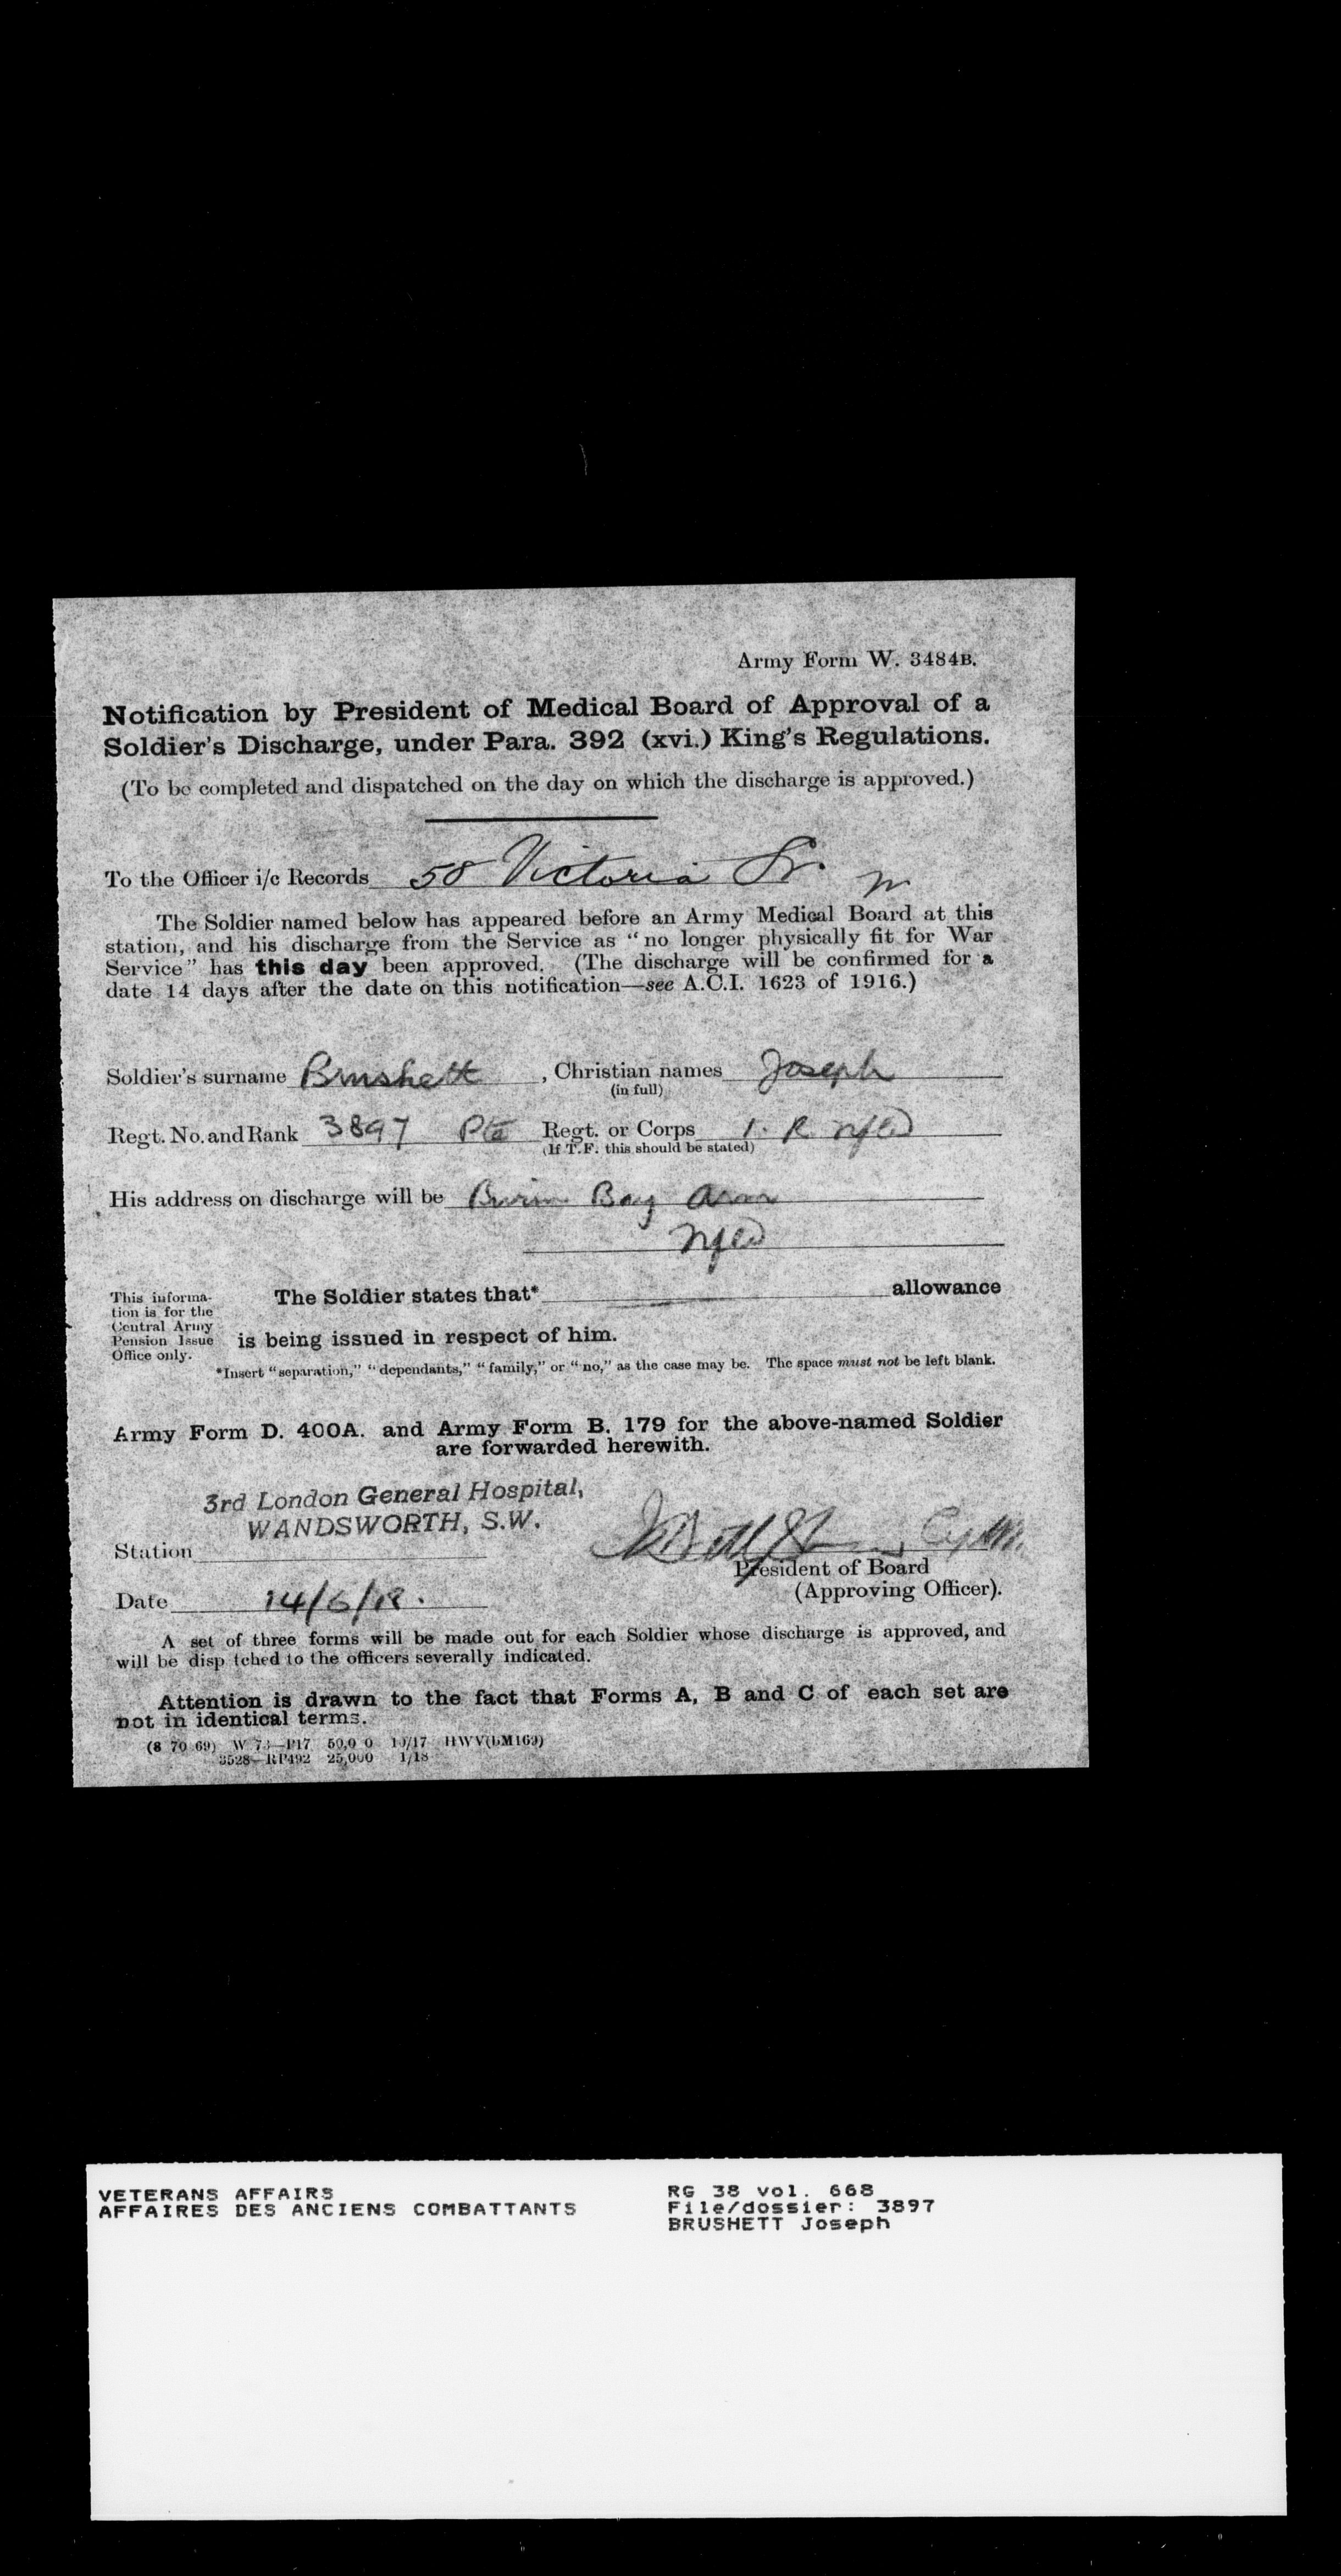 Army Form W. 3484B.
Notification by President of Medical Board of Approval of a
Soldier's Discharge, under Para. 392 (xvi.) King's Regulations.
(To be completed and dispatched on the day on which the discharge is approved.)
To the Officer i/c Records 58 Victoria St.
The Soldier named below has appeared before an Army Medical Board at this
station, and his discharge from the Service as "no longer physically fit for War
Service" has this day been approved. (The discharge will be confirmed for a
date 14 days after the date on this notification—see A.C.I. 1623 of 1916.)
Soldier's surname Brushett, Christian names Joseph
(in full)
Regt. No. and Rank 3897 Pte Regt. or Corps 1. R. Nfld
(If T.F. this should be stated)
His address on discharge will be Burin Bay Arm
Nfld
This informa-
tion is for the
Central Army
Pension Issue
Office only.
The Soldier states that* allowance
is being issued in respect of him.
*Insert "separation," "dependants," "family," or "no," as the case may be. The space must not be left blank.
Army Form D. 400A. and Army Form B. 179 for the above-named Soldier
are forwarded herewith.
3rd London General Hospital,
WANDSWORTH, S.W.
Station
President of Board
(Approving Officer).
Date 14/6/18.
A set of three forms will be made out for each Soldier whose discharge is approved, and
will be disp tched to the officers severally indicated.
Attention is drawn to the fact that Forms A, B and C of each set are
not in identical terms.
(8 70 69) 10/17
3528—RP492 25,000 1/18
VETERANS AFFAIRS
AFFAIRES DES ANCIENS COMBATTANTS
RG 38 vol. 668
File/dossier: 3897
BRUSHETT Joseph